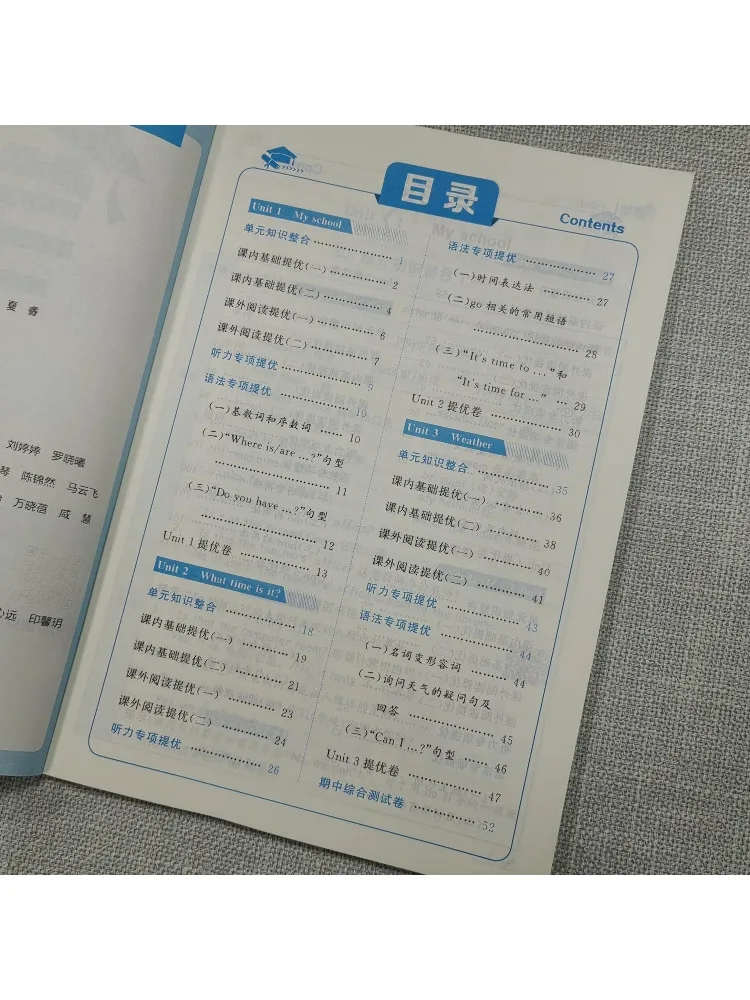 夏 睿
刘婷婷 罗晓曦
琴 陈锦然 马云飞
万晓蓓 咸 慧
心远 印馨玥
目录
Contents
Unit 1 My school
单元知识整合 ………… 1
课内基础提优(一) ………… 2
课内基础提优(二) ………… 4
课外阅读提优(一) ………… 6
课外阅读提优(二) ………… 7
听力专项提优 ………… 9
语法专项提优 ………… 10
(一)基数词和序数词 …… 10
(二)“Where is/are …?”句型
………… 11
(三)“Do you have …?”句型
………… 12
Unit 1 提优卷 ………… 13
Unit 2 What time is it?
单元知识整合 ………… 18
课内基础提优(一) ………… 19
课内基础提优(二) ………… 21
课外阅读提优(一) ………… 23
课外阅读提优(二) ………… 24
听力专项提优 ………… 26
语法专项提优 ………… 27
(一)时间表达法 ………… 27
(二)go 相关的常用短语
………… 28
(三)“It's time to …”和
“It's time for …” … 29
Unit 2 提优卷 ………… 30
Unit 3 Weather
单元知识整合 ………… 35
课内基础提优(一) ………… 36
课内基础提优(二) ………… 38
课外阅读提优(一) ………… 40
课外阅读提优(二) ………… 41
听力专项提优 ………… 43
语法专项提优 ………… 44
(一)名词变形容词 ………… 44
(二)询问天气的疑问句及
回答 ………… 45
(三)“Can I …?”句型 …… 46
Unit 3 提优卷 ………… 47
期中综合测试卷 ………… 52